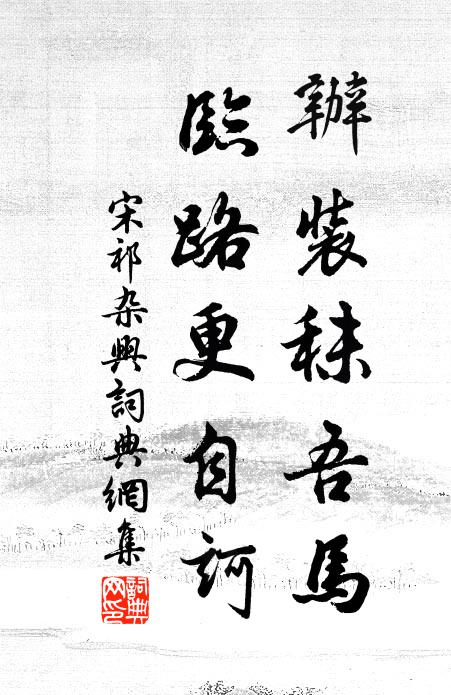 辦裝秣吾馬
臨路更自訶
宋祁杂興詞典網集
詞典